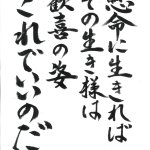 懸命に生きれば
その生き様は
歓喜の姿
これでいいのだ